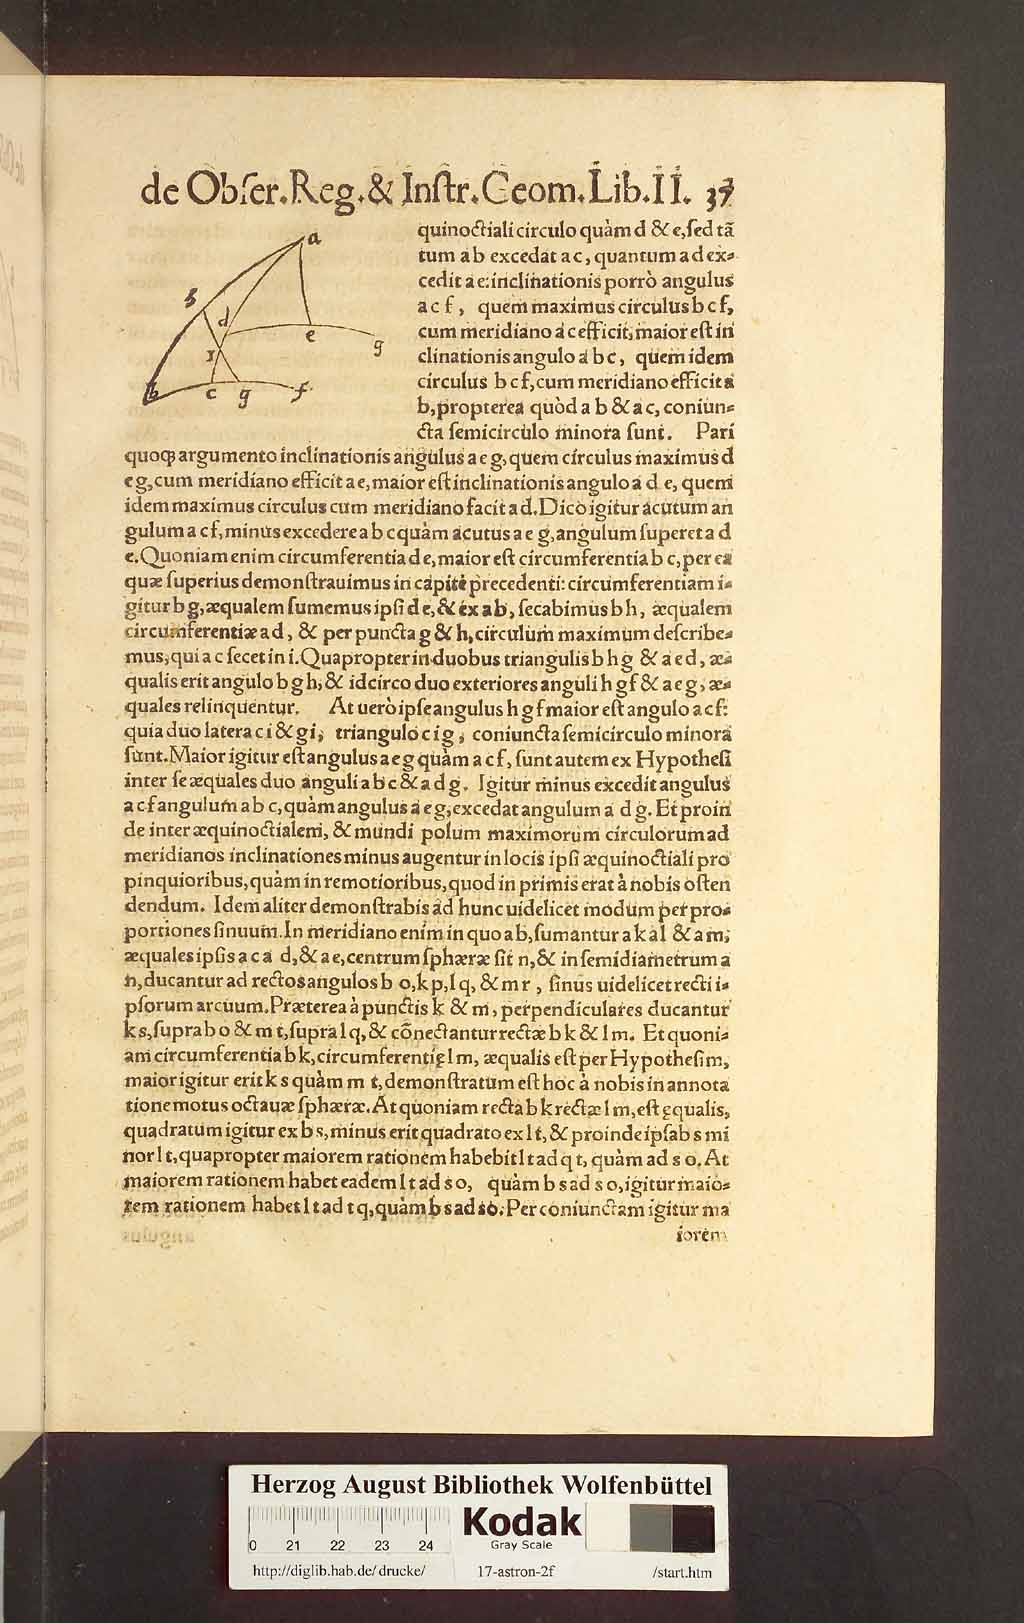 de Obser.Reg.& Instr.Geom.Lib.II. 37
a
h
d
e
g
I
b
c
g
f
quinoctiali circulo quàm d & e, sed tā
tum a b excedat a c, quantum a d ex-
cedit a e: inclinationis porrò angulus
a c f, quem maximus circulus b c f,
cum meridiano a c efficit, maior est in
clinationis angulo a b c, quem idem
circulus b c f, cum meridiano efficit a
b, propterea quòd a b & a c, coniun-
cta semicirculo minora sunt. Pari
quoqꝫ argumento inclinationis angulus a e g, quem circulus maximus d
e g, cum meridiano efficit a e, maior est inclinationis angulo a d e, quem
idem maximus circulus cum meridiano facit a d. Dico igitur acutum an
gulum a c f, minus excedere a b c quàm acutus a e g, angulum superet a d
e. Quoniam enim circumferentia d e, maior est circumferentia b c, per ea
quæ superius demonstrauimus in capite precedenti: circumferentiam i-
gitur b g, æqualem sumemus ipsi d e, & ex a b, secabimus b h, æqualem
circumferentiæ a d, & per puncta g & h, circulum maximum describe-
mus, qui a c secet in i. Quapropter in duobus triangulis b h g & a e d, æ-
qualis erit angulo b g h, & idcirco duo exteriores anguli h g f & a e g, æ-
quales relinquentur. At uerò ipse angulus h g f maior est angulo a c f:
quia duo latera c i & g i, triangulo c i g, coniuncta semicirculo minora
sunt. Maior igitur est angulus a e g quàm a c f, sunt autem ex Hypothesi
inter se æquales duo anguli a b c & a d g. Igitur minus excedit angulus
a c f angulum a b c, quàm angulus a e g, excedat angulum a d g. Et proin
de inter æquinoctialem, & mundi polum maximorum circulorum ad
meridianos inclinationes minus augentur in locis ipsi æquinoctiali pro
pinquioribus, quàm in remotioribus, quod in primis erat à nobis osten
dendum. Idem aliter demonstrabis ad hunc uidelicet modum per pro-
portiones sinuum. In meridiano enim in quo a b, sumantur a k a l & a m,
æquales ipsis a c a d, & a e, centrum sphæræ sit n, & in semidiametrum a
n, ducantur ad rectos angulos b o, k p, l q, & m r, sinus uidelicet recti i-
psorum arcuum. Præterea à punctis k & m, perpendiculares ducantur
k s, supra b o & m t, supra l q, & cōnectantur rectæ b k & l m. Et quoni-
am circumferentia b k, circumferentię l m, æqualis est per Hypothesim,
maior igitur erit k s quàm m t, demonstratum est hoc à nobis in annota
tione motus octauæ sphæræ. At quoniam recta b k rectæ l m, est ęqualis,
quadratum igitur ex b s, minus erit quadrato ex l t, & proinde ipsa b s mi
nor l t, quapropter maiorem rationem habebit l t ad q t, quàm ad s o. At
maiorem rationem habet eadem l t ad s o, quàm b s ad s o, igitur maio-
rem rationem habet l t ad t q, quàm b s ad s o. Per coniunctam igitur ma
iorem
Herzog August Bibliothek Wolfenbüttel
0 21 22 23 24
Kodak
Gray Scale
http://diglib.hab.de/drucke/ 17-astron-2f /start.htm